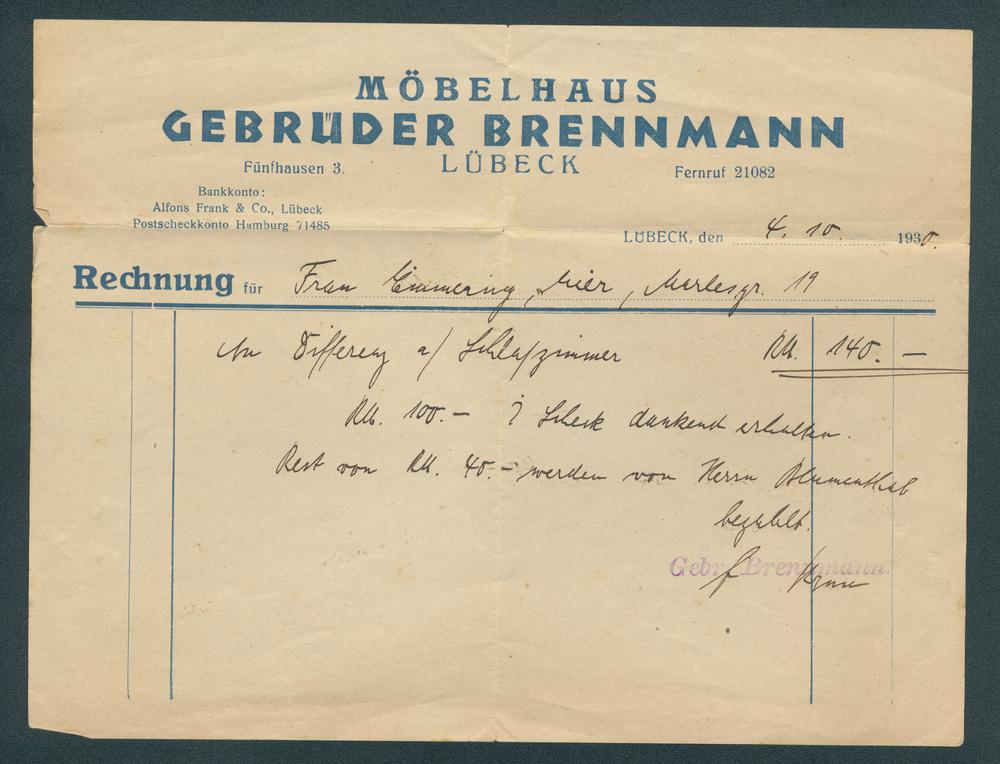 MÖBELHAUS
GEBRÜDER BRENNMANN
Fünfhausen 3. LÜBECK Fernruf 21082
Bankkonto:
Alfons Frank & Co., Lübeck
Postscheckkonto Hamburg 71485
LÜBECK, den 4. 10. 1930.
Rechnung für Frau Emmering, hier, Marlesgr. 19
An Differenz a/ Schlafzimmer RM. 140. —
RM. 100.— Scheck dankend erhalten.
Rest von RM. 40.— werden von Herrn Blumenthal
bezahlt.
Gebr. Brennmann.